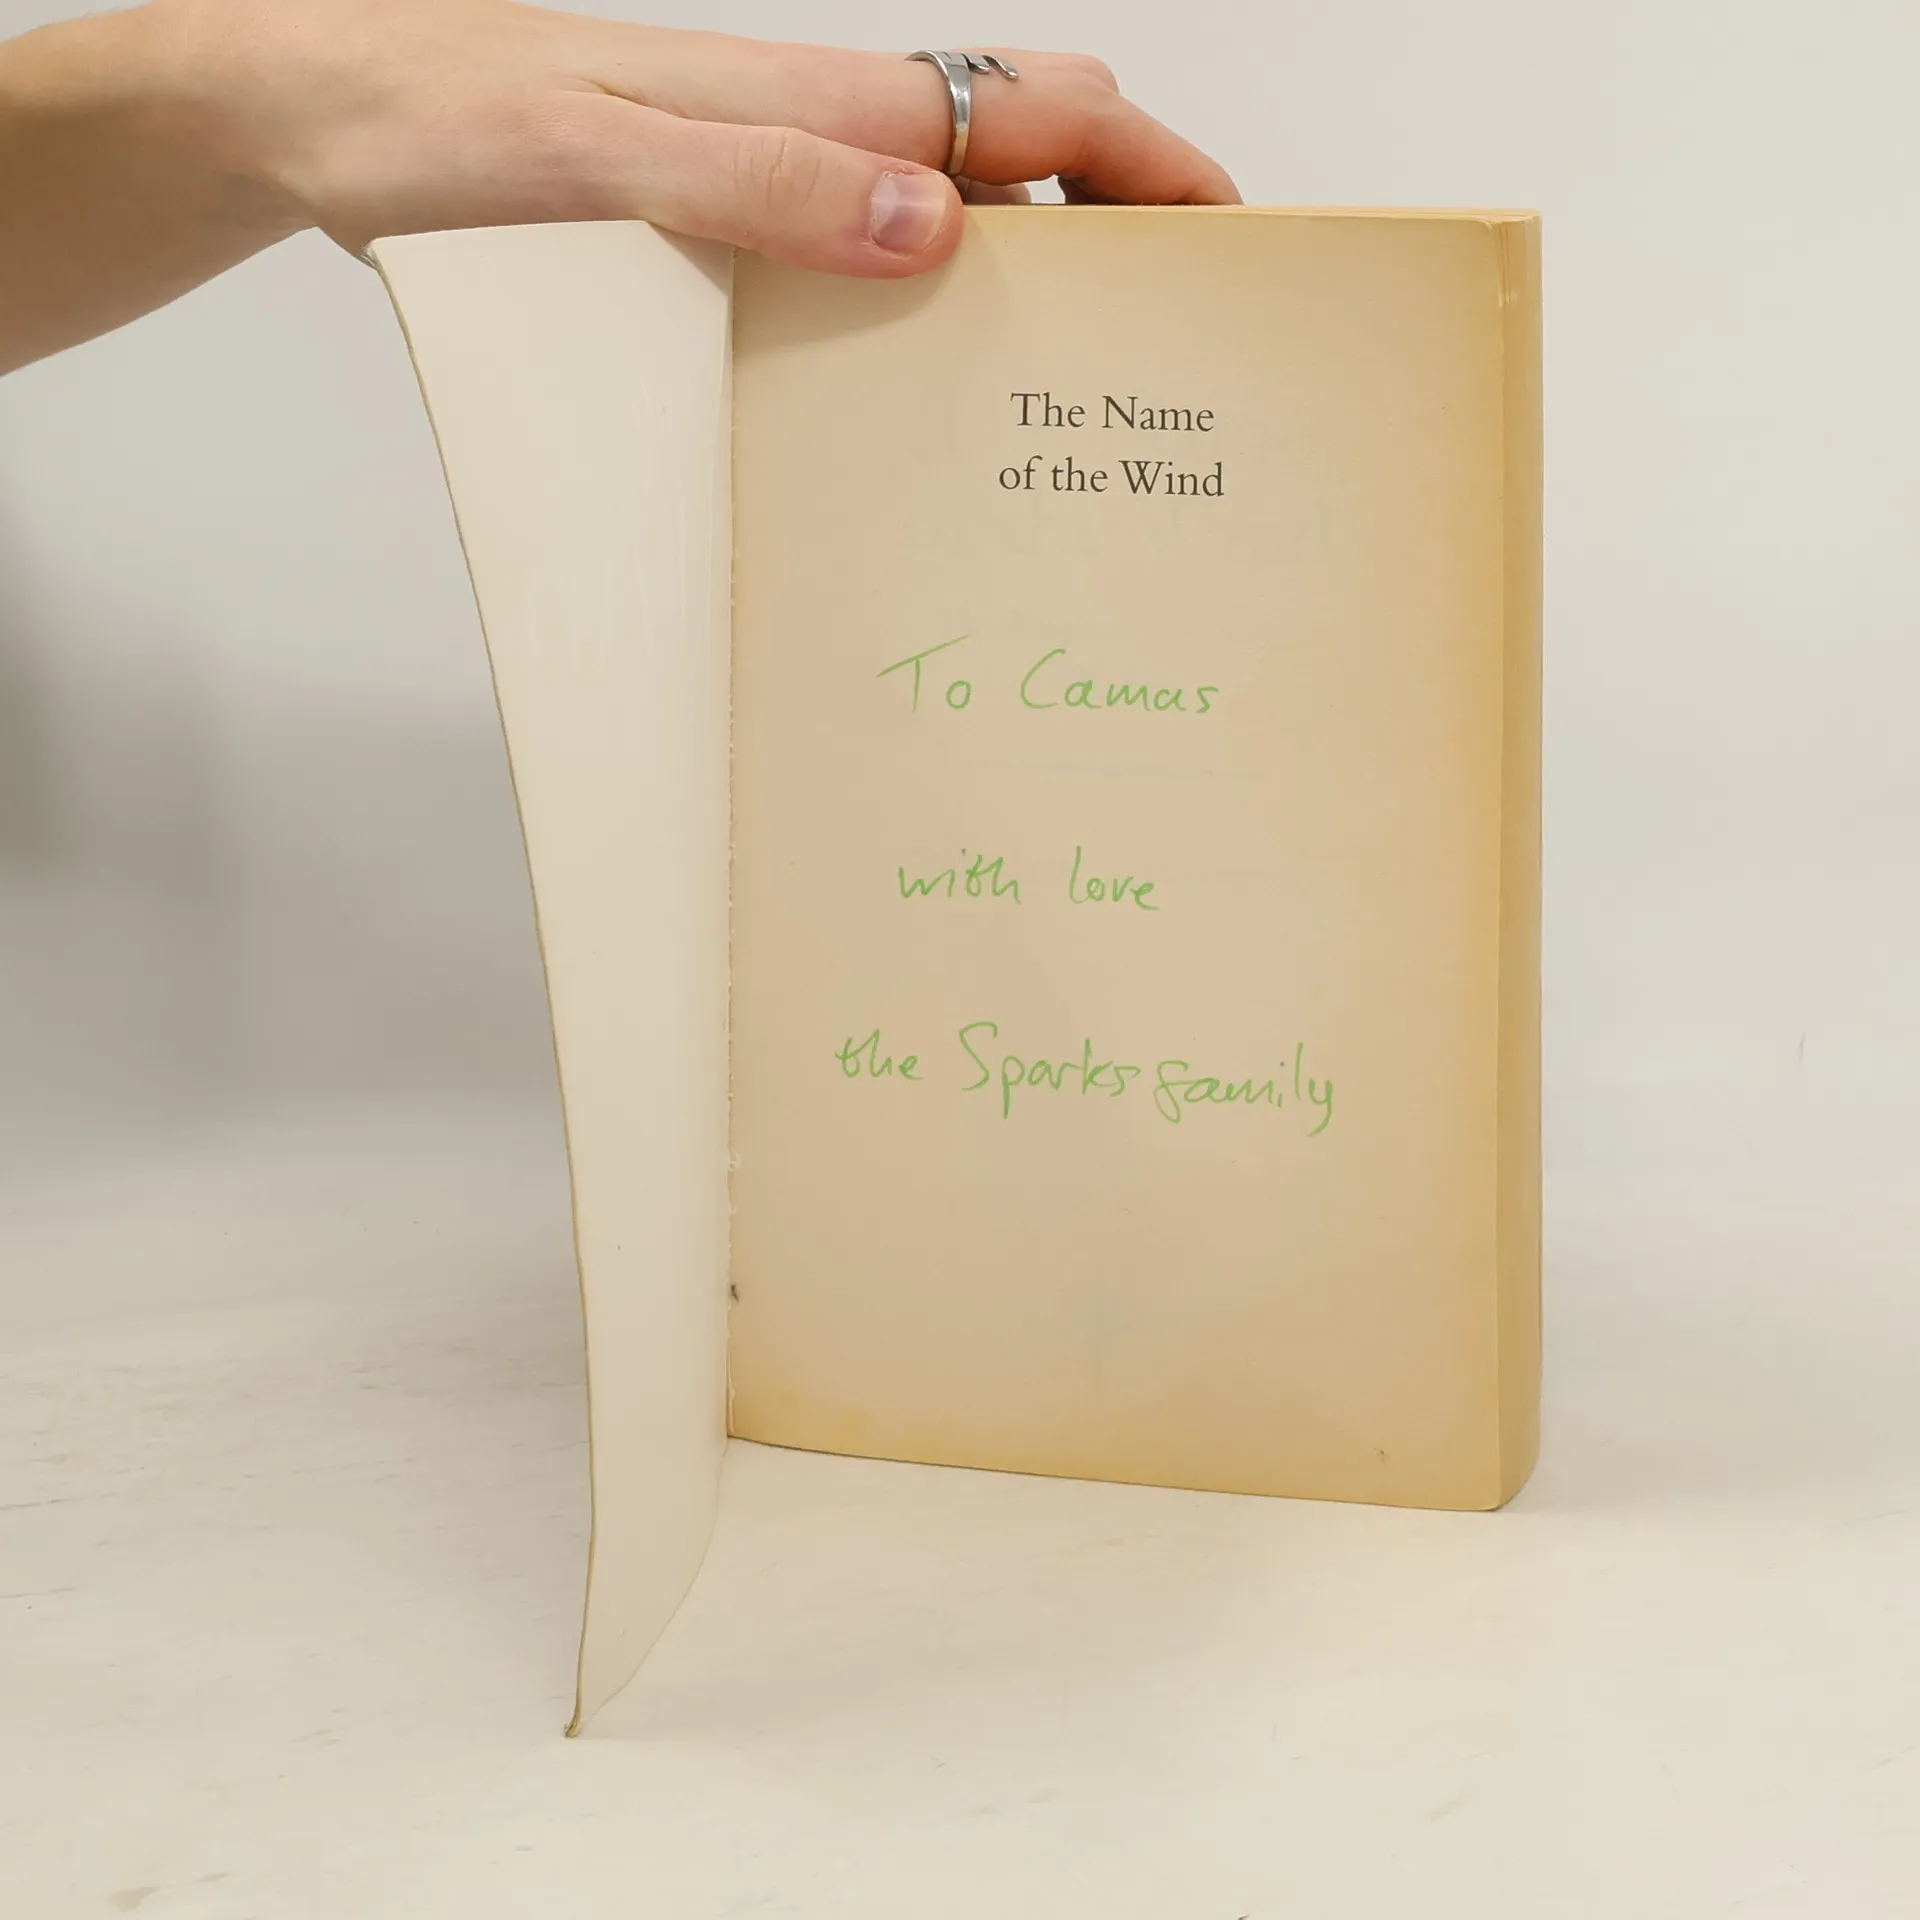 The Name
of the Wind
To Camas
with love
the Sparks family